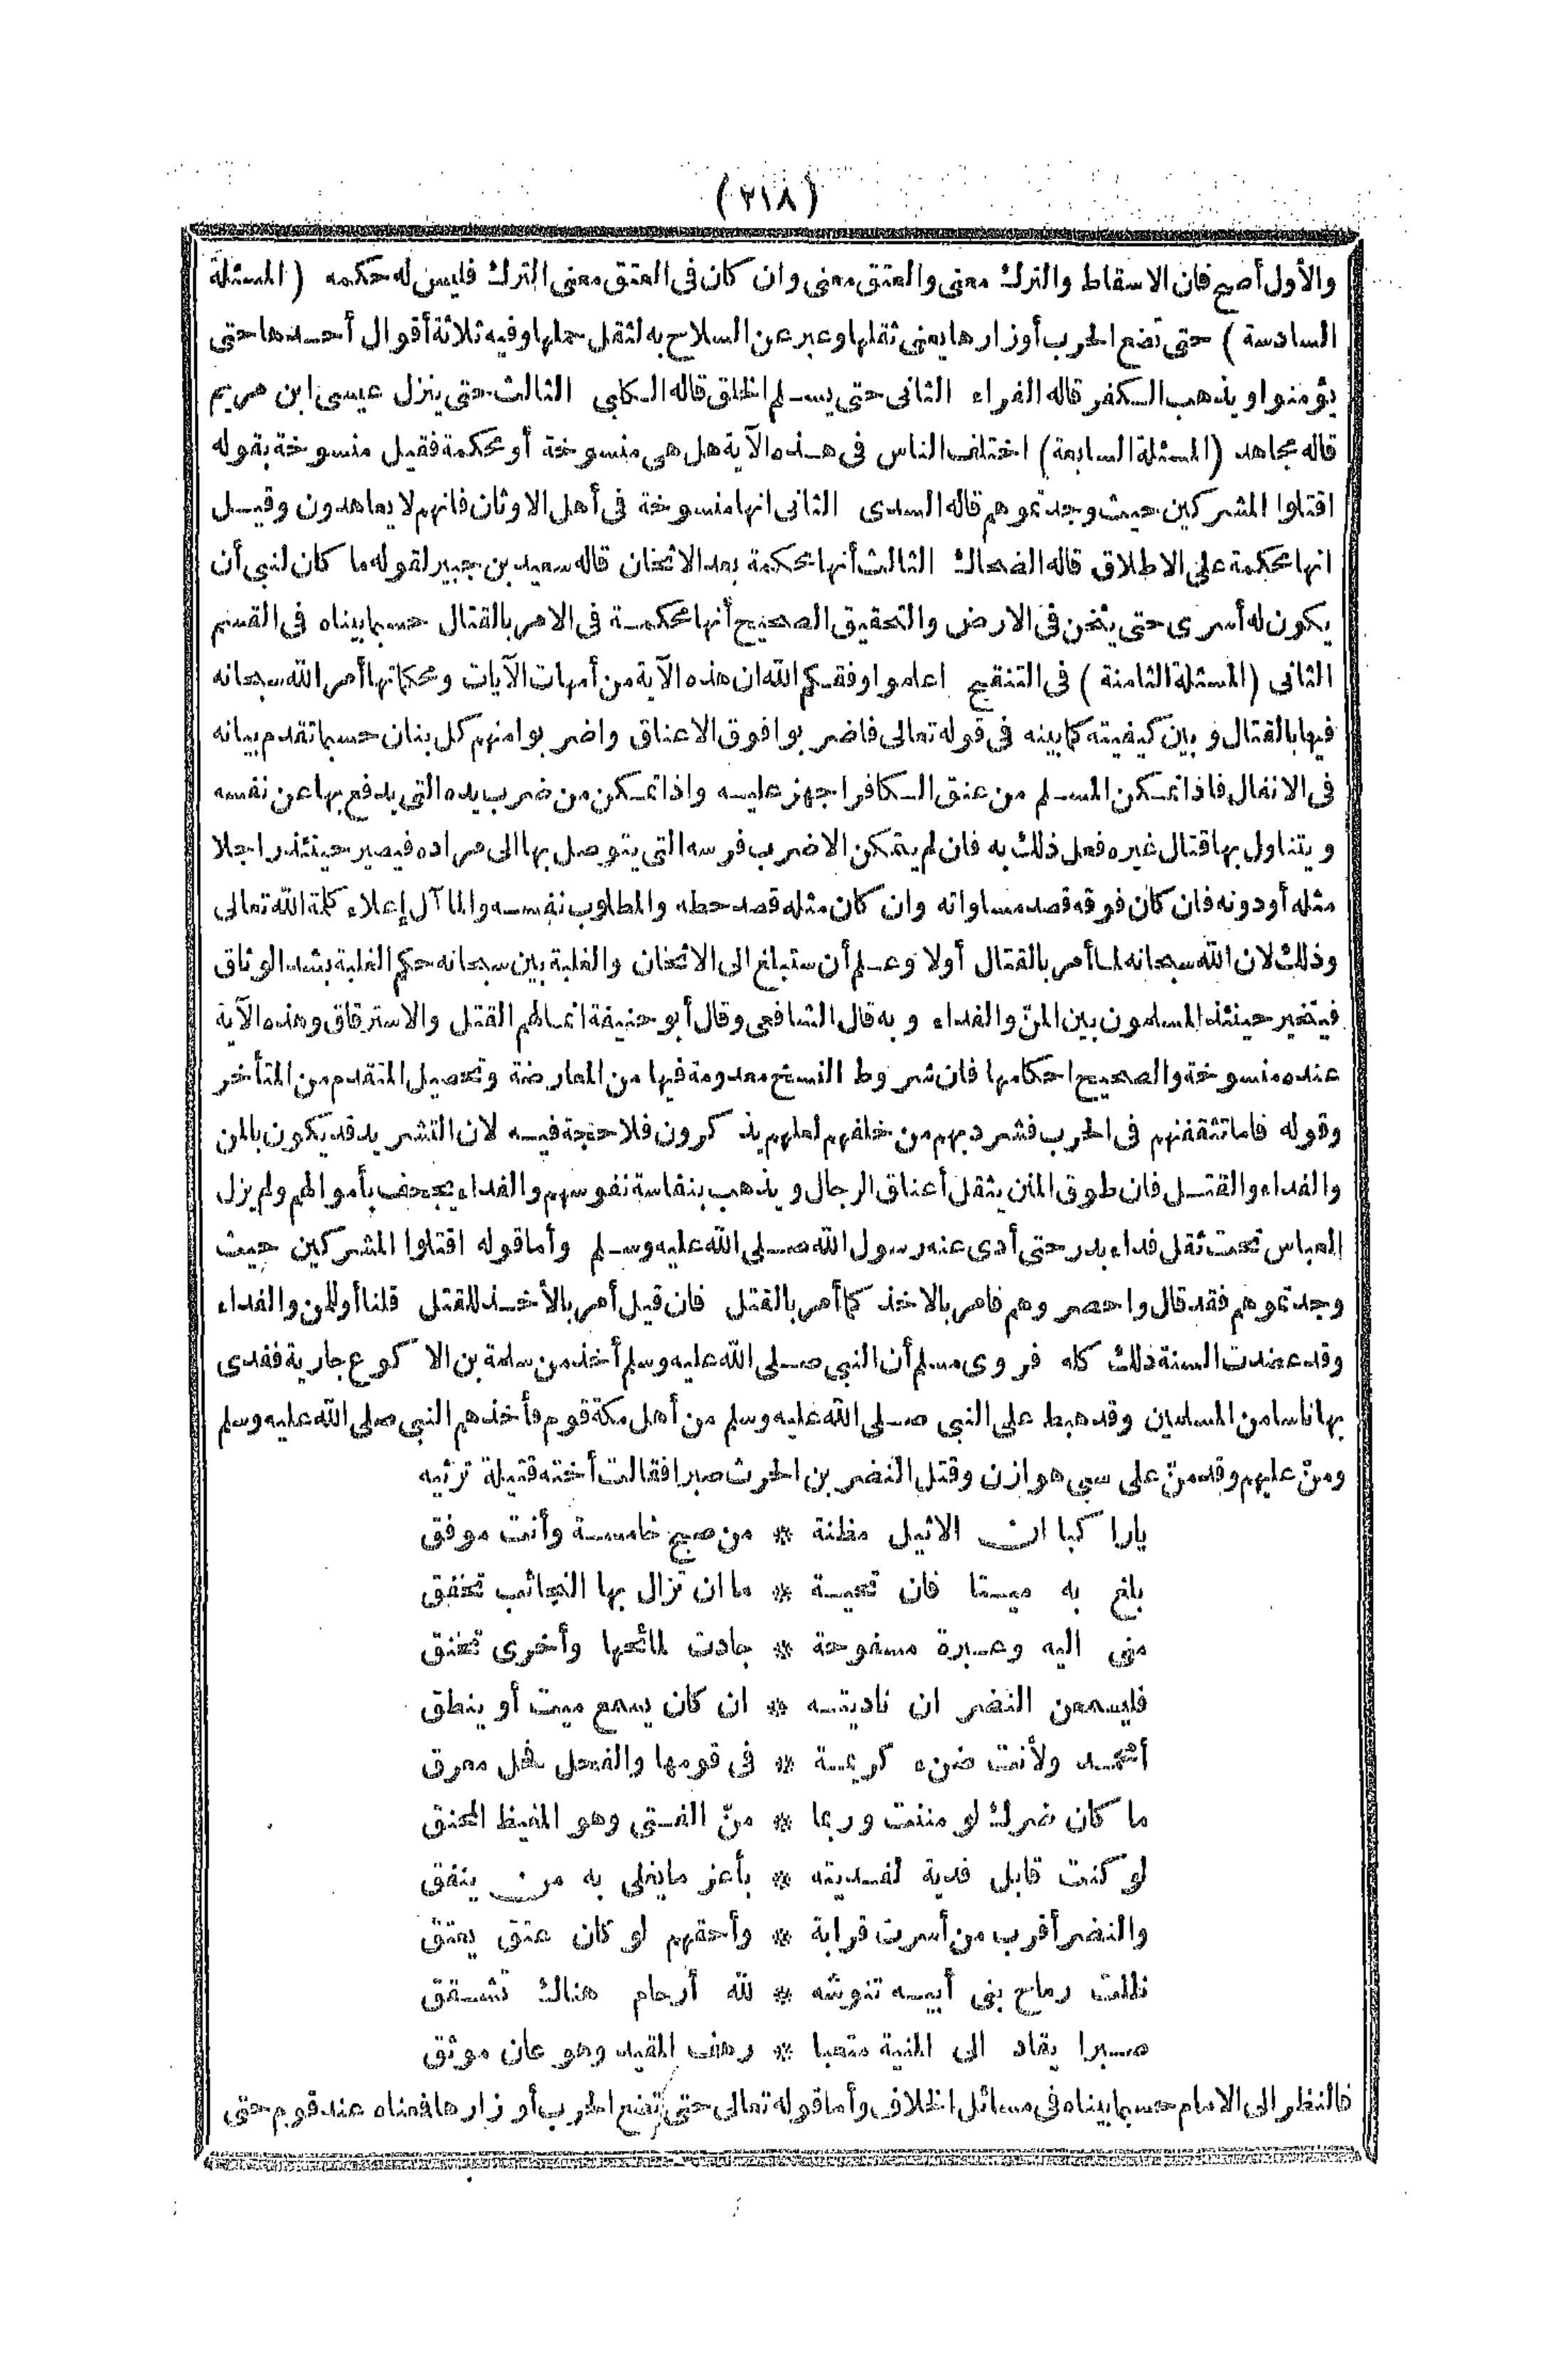 (٢١٨)
والأول أصح فان الاسقاط والترك معنى والعتق معنى وان كان فى العتق معنى الترك فليس له حكمه (المسئلة
السادسة) حتى تضع الحرب أوزارها يعنى ثقلها وعبر عن السلاح به لثقل حملها وفيه ثلاثة أقوال أحدها حتى
يؤمنوا ويذهب الكفر قاله الفراء الثانى حتى يسلم الخلق قاله الكلبى الثالث حتى ينزل عيسى ابن مريم
قاله مجاهد (المسئلة السابعة) اختلف الناس فى هذه الآية هل هى منسوخة أو محكمة فقيل منسوخة بقوله
اقتلوا المشركين حيث وجدتموهم قاله السدى الثانى انها منسوخة فى أهل الاوثان فانهم لا يعاهدون وقيل
انها محكمة على الاطلاق قاله الضحاك الثالث أنها محكمة بعد الاثخان قاله سعيد بن جبير لقوله ما كان لنبى أن
يكون له أسرى حتى يثخن فى الارض والتحقيق الصحيح أنها محكمة فى الامر بالقتال حسبما بيناه فى القسم
الثانى (المسئلة الثامنة) فى التنقيح اعلموا وفقكم الله ان هذه الآية من أمهات الآيات ومحكماتها أمر الله سبحانه
فيها بالقتال وبين كيفيته كما بينه فى قوله تعالى فاضربوا فوق الاعناق واضربوا منهم كل بنان حسبما تقدم بيانه
فى الانفال فاذا تمكن المسلم من عنق الكافر اجهز عليه واذا تمكن من ضرب يده التى يدفع بها عن نفسه
ويتناول بها قتال غيره فعل ذلك به فان لم يتمكن الا ضرب فرسه التى يتوصل بها الى مراده فيصير حينئذ راجلا
مثله أو دونه فان كان فوقه قصد مساواته وان كان مثله قصد حطه والمطلوب نفسه والمآل إعلاء كلمة الله تعالى
وذلك لان الله سبحانه لما أمر بالقتال أولا وعلم أن ستبلغ الى الاثخان والغلبة بين سبحانه حكم الغلبة بشد الوثاق
فيتخير حينئذ المسلمون بين المنّ والفداء وبه قال الشافعى وقال أبو حنيفة انما لهم القتل والاسترقاق وهذه الآية
عنده منسوخة والصحيح احكامها فان شروط النسخ معدومة فيها من المعارضة وتحصيل المتقدم من المتأخر
وقوله فاما تثقفنهم فى الحرب فشرد بهم من خلفهم لعلهم يذكرون فلا حجة فيه لان التشريد قد يكون بالمن
والفداء والقتل فان طوق المن يثقل أعناق الرجال ويذهب بنفاسة نفوسهم والفداء يجحف بأموالهم ولم يزل
العباس تحت ثقل فداء بدر حتى أدى عنه رسول الله صلى الله عليه وسلم وأما قوله اقتلوا المشركين حيث
وجدتموهم فقد قال واحصروهم فامر بالاخذ كما أمر بالقتل فان قيل أمر بالأخذ للقتل قلنا أو للمن والفداء
وقد عضدت السنة ذلك كله فروى مسلم أن النبى صلى الله عليه وسلم أخذ من سلمة بن الاكوع جارية ففدى
بها ناسا من المسلمين وقد هبط على النبى صلى الله عليه وسلم من أهل مكة قوم فأخذهم النبى صلى الله عليه وسلم
ومنّ عليهم وقد منّ على سبى هوازن وقتل النضر بن الحرث صبرا فقالت أخته قتيلة ترثيه
يا راكبا ان الاثيل مظنة * من صبح خامسة وأنت موفق
بلغ به ميتا فان تحية * ما ان تزال بها النجائب تخفق
منى اليه وعبرة مسفوحة * جادت لمائحها وأخرى تخنق
فليسمعن النضر ان ناديته * ان كان يسمع ميت أو ينطق
أمحمد ولأنت ضنء كريمة * فى قومها والفحل فحل معرق
ما كان ضرك لو مننت وربما * منّ الفتى وهو المغيظ المحنق
لو كنت قابل فدية لفديته * بأعز ما يغلى به من ينفق
والنضر أقرب من أسرت قرابة * وأحقهم لو كان عتق يعتق
ظلت رماح بنى أبيه تنوشه * لله أرحام هناك تشقق
صبرا يقاد الى المنية متعبا * رسف المقيد وهو عان موثق
فالنظر الى الامام حسبما بيناه فى مسائل الخلاف وأما قوله تعالى حتى تضع الحرب أوزارها فمعناه عند قوم حتى